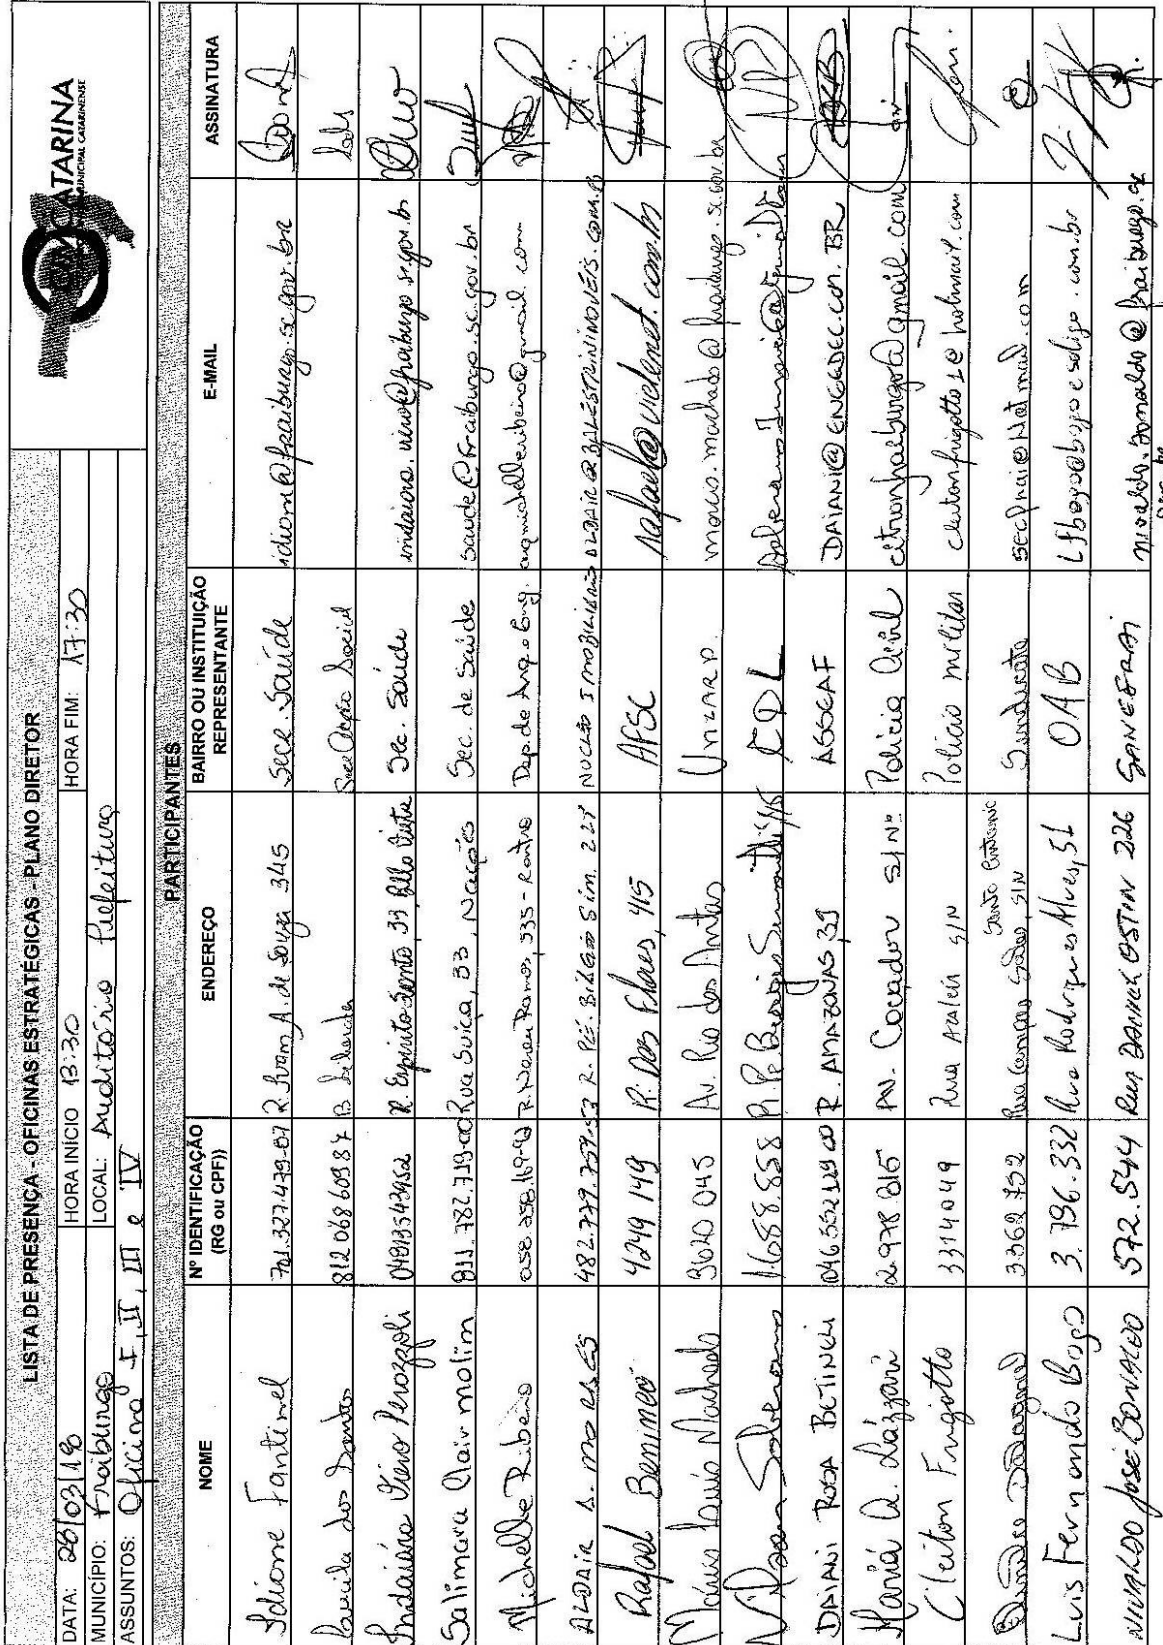 LISTA DE PRESENÇA - OFICINAS ESTRATÉGICAS - PLANO DIRETOR
CATARINA
MUNICIPAL CATARINENSE
DATA: 28/03/18 HORA INÍCIO 13:30 HORA FIM: 17:30
MUNICIPIO: Fraiburgo LOCAL: Auditório Prefeitura
ASSUNTOS: Oficina I, II, III e IV
PARTICIPANTES
NOME Nº IDENTIFICAÇÃO (RG ou CPF)) ENDEREÇO BAIRRO OU INSTITUIÇÃO REPRESENTANTE E-MAIL ASSINATURA
Idione Fantinel 701.327.479-07 R. Ivan A. de Souza 345 Secr. Saúde idione@fraiburgo.sc.gov.br
dos Santos 81206860984 B. Liberata Secr Ação Social
Indaiara Vieiro Perazzoli 04913543952 R. Espirito Santo, 33, Bella Vista Sec. Saúde indaiara.vieiro@fraiburgo.sc.gov.br
Salimara Clair molim 811.782.719-00 Rua Suiça, 33, Nações Sec. de Saúde saude@fraiburgo.sc.gov.br
Michelle Ribeiro 058.258.169-92 R. Nereu Ramos, 535 - Centro Dep. de Arq. e Eng. engmichelleribeiro@gmail.com
ALDAIR A. moraes 482.779.759-53 R. Pe. Biagio Sim. 225 NUCLEO IMOBILIARIO ALDAIR@BALESTRINIMOVEIS.COM.B
Rafael Benimeo 4249149 R. Das Flores, 415 AFSC rafael@videnet.com.br
Marcus Luis Machado 3620045 Av. Rio das Antas Unzarp marcus.machado@fraiburgo.sc.gov.br
Nilson Soberano 1.688.858 R. Pe. Biagio CDL
DAIANI ROSA BETINCHI 04655212900 R. AMAZONAS, 39 ASSEAF DAIANI@ENGEDEC.COM.BR
Maria A. Lazzari 2.978 215 Av. Caçador S/Nº Policia Civil citranfraiburgo@gmail.com
Cleiton Frigotto 3314049 Rua Azaleia S/N Policia militar cleitonfrigotto1@hotmail.com
3.362 752 Rua Campos Sales, S/N Santo Antonio Sindicato secfrai@hotmail.com
Luis Fernando Bogo 3.796.332 Rua Rodrigues Alves, 51 OAB Lfbogo@bogoesoligo.com.br
NIVALDO José BONALDO 572.544 Rua OSTIN 226 SANEFRAI nivaldo.bonaldo@fraiburgo.sc
gov.br